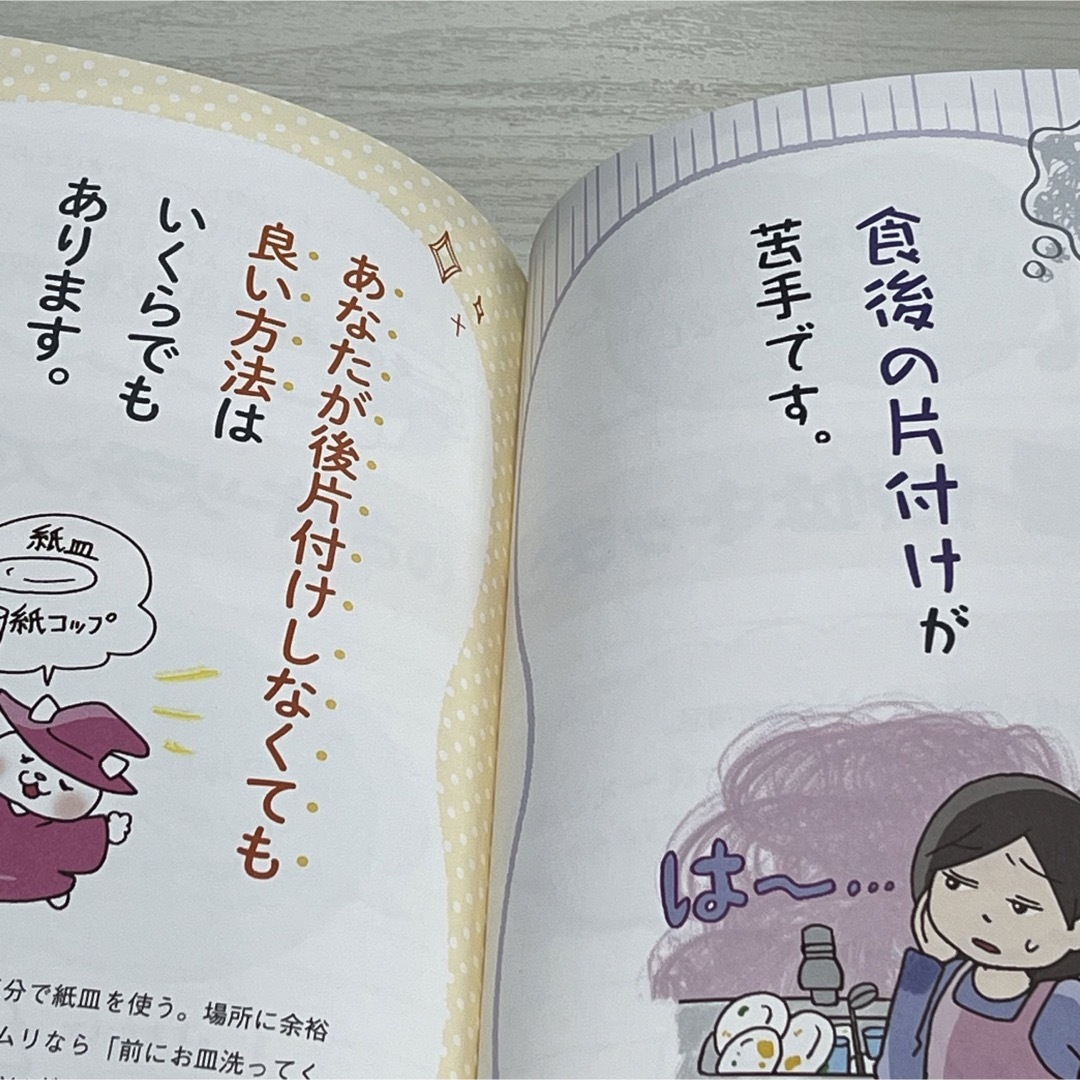 食後の片付けが
苦手です。
は〜…
あなたが後片付けしなくても
良い方法は
いくらでも
あります。
紙皿
紙コップ
分で紙皿を使う。場所に余裕
ムリなら「前にお皿洗ってく